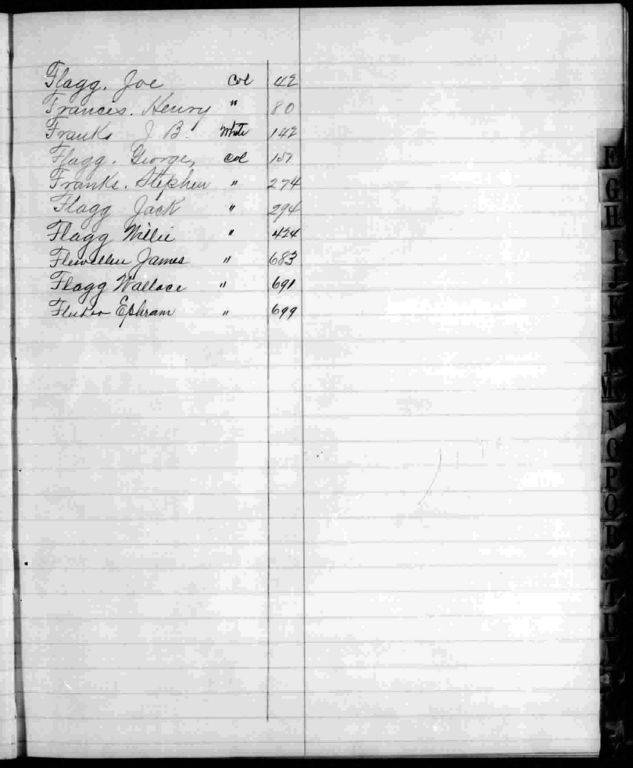 Flagg. Joe Col 42
Francis. Henry " 80
Franks J B White 142
Flagg. George, Col
Franks. Stephen " 274
Flagg Jack " 294
Flagg Willie " 424
Flewellen James " 683
Flagg Wallace " 691
Ephram " 699
E
G
H
I